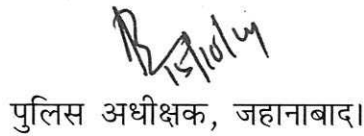 पुलिस अधीक्षक, जहानाबाद।